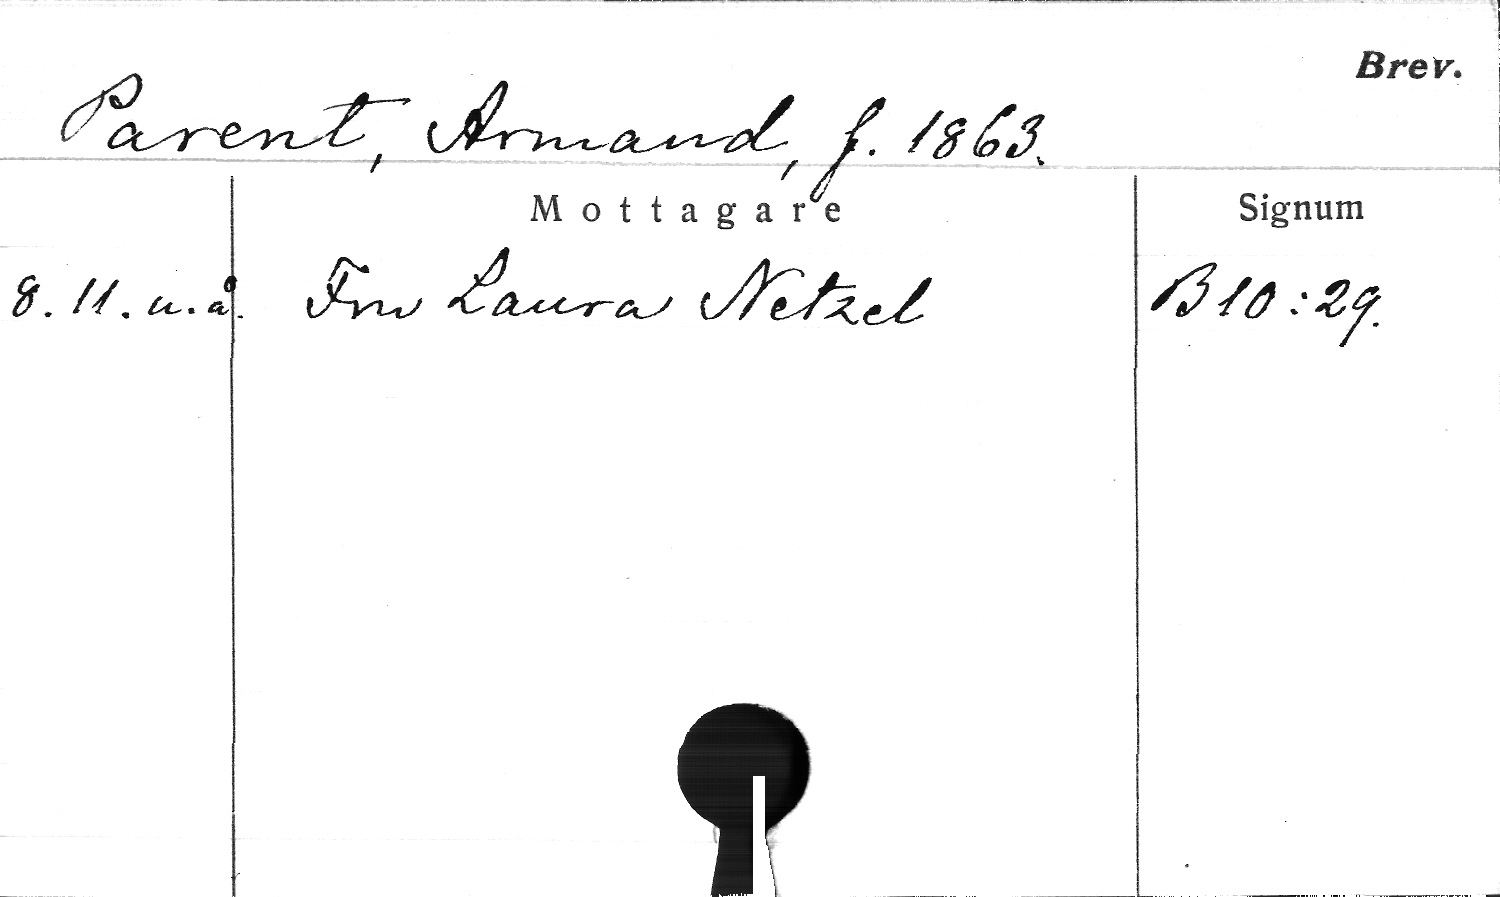 Brev.
Parent, Armand, f. 1863.
Mottagare Signum
8. 11. u. å. Fru Laura Netzel B10:29.